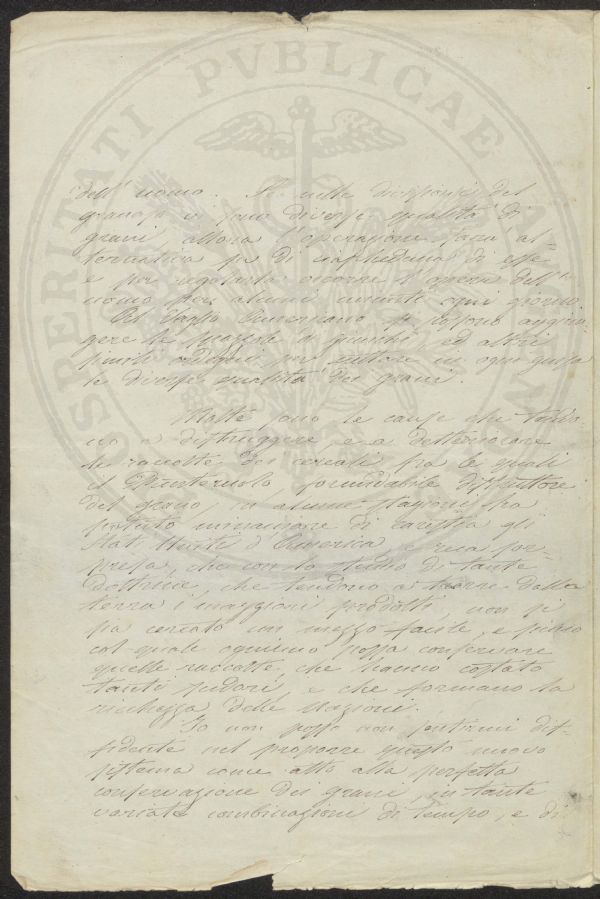 dell' uomo. Se nelle divisioni del
granajo vi sono diverse qualità di
grani allora l'operazione sarà al-
ternativa di di esse
e per regolarla occorre l'opera dell'
uomo per alcuni minuti ogni giorno.
Col stesso si possono
le ed altri
simili per in ogni
le diverse qualità dei grani.
Molte sono le cause che tendo
no a distruggere, e a deteriorare
le raccolte dei cereali, fra le quali
il Punteruolo formidabile distruttore
del grano, in alcune stagioni ha
potuto minacciare di carestia gli
Stati Uniti d'America, e reca sor-
presa, che con lo studio di tante
dottrine, che tendono a trarre dalla
terra i maggiori prodotti, non si
sia cercato un mezzo facile, e
col quale ognuno possa conservare
quelle raccolte, che hanno costato
tanti sudori, e che formano la
ricchezza delle Nazioni.
Io non posso non sentirmi dif-
fidente nel proporre questo nuovo
sistema come atto alla perfetta
conservazione dei grani, in tante
variate combinazioni di tempo, e di
PROSPERITATI PVBLICAE